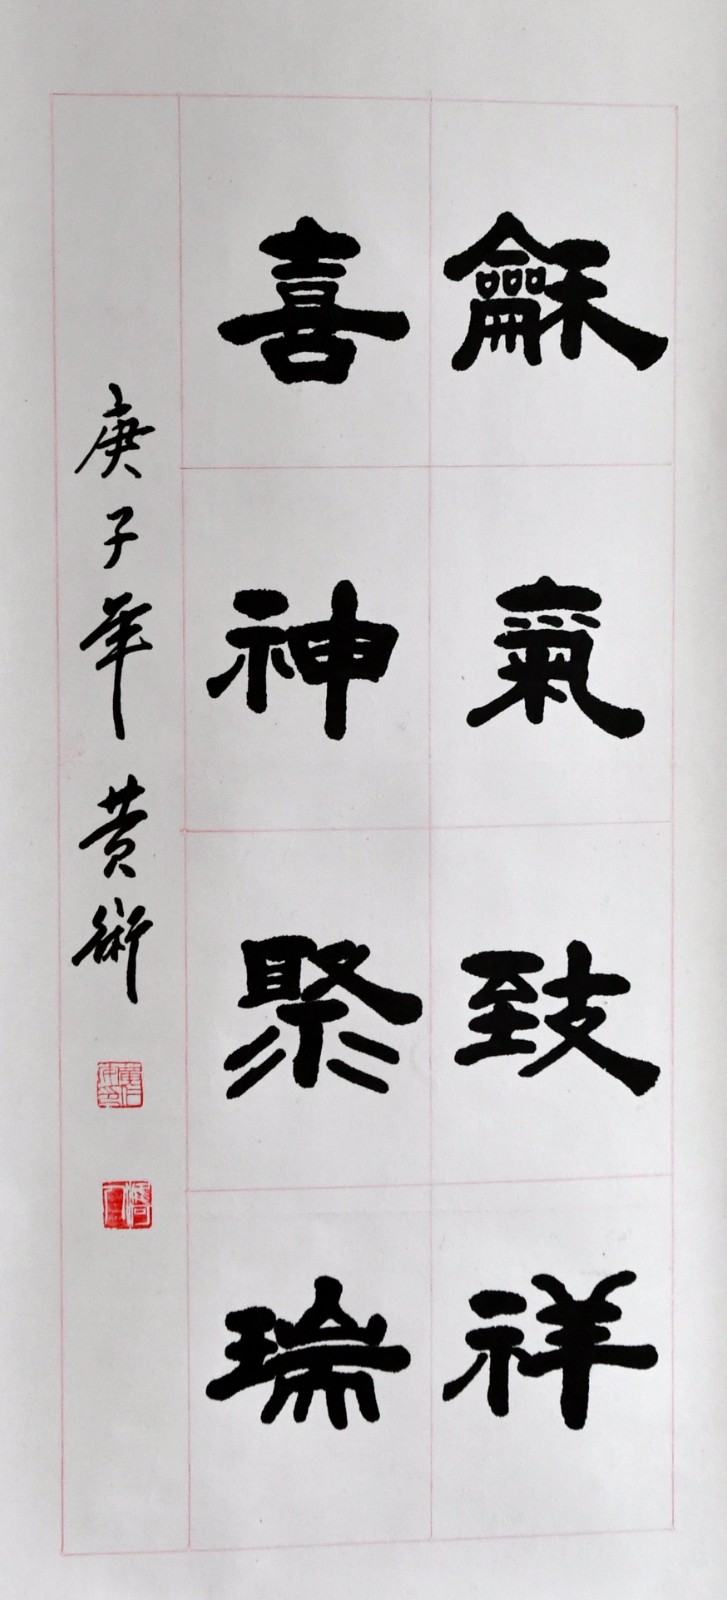 龢氣致祥
喜神聚瑞
庚子年 黄術